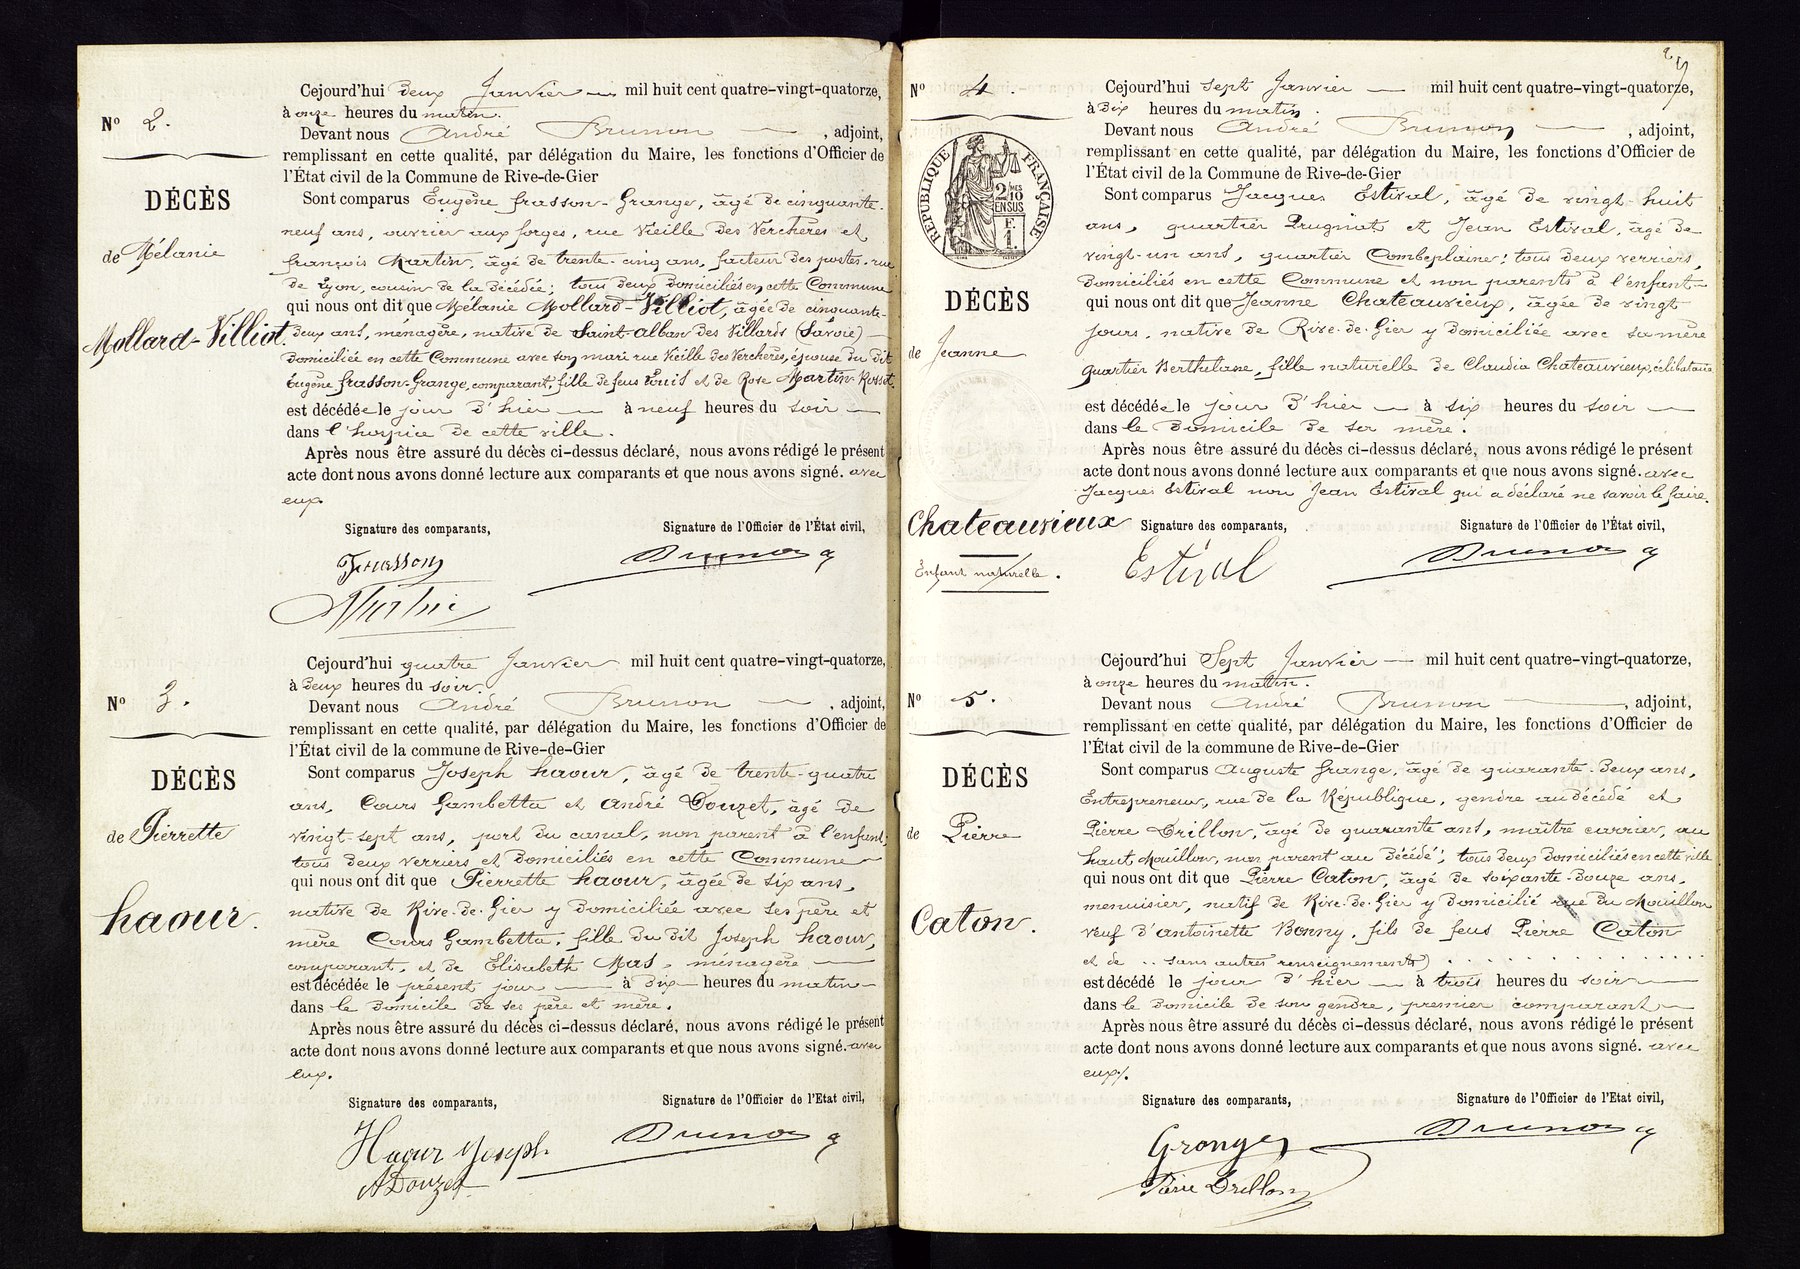 Nº 2.
DÉCÈS
de Mélanie
Mollard-Villiot.
Cejourd'hui deux Janvier — mil huit cent quatre-vingt-quatorze,
à onze heures du matin.
Devant nous André Brunon — , adjoint,
remplissant en cette qualité, par délégation du Maire, les fonctions d'Officier de
l'État civil de la Commune de Rive-de-Gier
Sont comparus Eugène frasson-Grange, âgé de cinquante-
neuf ans, ouvrier aux forges, rue Vieille des Verchères et
françois Martin, âgé de trente-cinq ans, facteur des postes, rue
de Lyon, cousin de la décédée; tous deux domiciliés en cette Commune
qui nous ont dit que Mélanie Mollard-Villiot, âgée de cinquante-
deux ans, ménagère, native de Saint-Alban des Villards (Savoie) —
domiciliée en cette Commune avec son mari rue Vieille des Verchères, épouse du dit
Eugène frasson-Grange, comparant, fille de feus Louis et de Rose Martin-Rosset.
est décédée le jour d'hier — à neuf heures du soir —
dans l'hospice de cette ville.
Après nous être assuré du décès ci-dessus déclaré, nous avons rédigé le présent
acte dont nous avons donné lecture aux comparants et que nous avons signé. avec
eux.
Signature des comparants,
Signature de l'Officier de l'État civil,
Frasson
Brunon
Martin
Nº 3.
DÉCÈS
de Pierrette
haour.
Cejourd'hui quatre Janvier mil huit cent quatre-vingt-quatorze,
à deux heures du soir.
Devant nous André Brunon — , adjoint,
remplissant en cette qualité, par délégation du Maire, les fonctions d'Officier de
l'État civil de la commune de Rive-de-Gier
Sont comparus Joseph haour, âgé de trente-quatre
ans, Cours Gambetta et André Douzet, âgé de
vingt-sept ans, port du canal, non parent à l'enfant;
tous deux verriers et domiciliés en cette Commune
qui nous ont dit que Pierrette haour, âgée de six ans,
native de Rive-de-Gier y domiciliée avec ses père et
mère Cours Gambetta, fille du dit Joseph haour,
comparant, et de Elisabeth Mas, ménagère —
est décédée le présent jour — à dix — heures du matin —
dans le domicile de ses père et mère.
Après nous être assuré du décès ci-dessus déclaré, nous avons rédigé le présent
acte dont nous avons donné lecture aux comparants et que nous avons signé. avec
eux.
Signature des comparants,
Signature de l'Officier de l'Etat civil,
Haour Joseph
Brunon
A Douzet
2
Nº 4.
RÉPUBLIQUE FRANÇAISE
2/10 MES
EN SUS
F.
1.
DÉCÈS
de Jeanne
Chateauvieux
Enfant naturelle.
Cejourd'hui sept Janvier — mil huit cent quatre-vingt-quatorze,
à dix heures du matin.
Devant nous André Brunon — , adjoint,
remplissant en cette qualité, par délégation du Maire, les fonctions d'Officier de
l'État civil de la Commune de Rive-de-Gier
Sont comparus Jacques Estival, âgé de vingt-huit
ans, quartier Prugnat et Jean Estival, âgé de
vingt-un ans, quartier Combeplaine; tous deux verriers,
domiciliés en cette Commune et non parents à l'enfant —
qui nous ont dit que Jeanne Chateauvieux, âgée de vingt
jours, native de Rive-de-Gier y domiciliée avec sa mère
quartier Berthelane, fille naturelle de Claudia Chateauvieux, célibataire
est décédée le jour d'hier — à six heures du soir —
dans le domicile de sa mère.
Après nous être assuré du décès ci-dessus déclaré, nous avons rédigé le présent
acte dont nous avons donné lecture aux comparants et que nous avons signé. avec
Jacques Estival non Jean Estival qui a déclaré ne savoir le faire.
Signature des comparants,
Signature de l'Officier de l'État civil,
Estival
Brunon
Nº 5.
DÉCÈS
de Pierre
Caton.
Cejourd'hui Sept Janvier — mil huit cent quatre-vingt-quatorze,
à onze heures du matin.
Devant nous André Brunon — , adjoint,
remplissant en cette qualité, par délégation du Maire, les fonctions d'Officier de
l'État civil de la commune de Rive-de-Gier
Sont comparus Auguste Grange, âgé de quarante-deux ans,
Entrepreneur, rue de la République, gendre au décédé et
Pierre Drillon, âgé de quarante ans, maître carrier, au
haut Mouillon, non parent au décédé; tous deux domiciliés en cette ville
qui nous ont dit que Pierre Caton, âgé de soixante-douze ans,
menuisier, natif de Rive-de-Gier y domicilié rue du Mouillon
veuf d'antoinette Bonny, fils de feus Pierre Caton
et de .. sans autres renseignements) . . . . . . . . . .
est décédé le jour d'hier — à trois heures du soir —
dans le domicile de son gendre, premier comparant —
Après nous être assuré du décès ci-dessus déclaré, nous avons rédigé le présent
acte dont nous avons donné lecture aux comparants et que nous avons signé. avec
eux/.
Signature des comparants,
Signature de l'Officier de l'Etat civil,
Grange
Brunon
Pierre Drillon